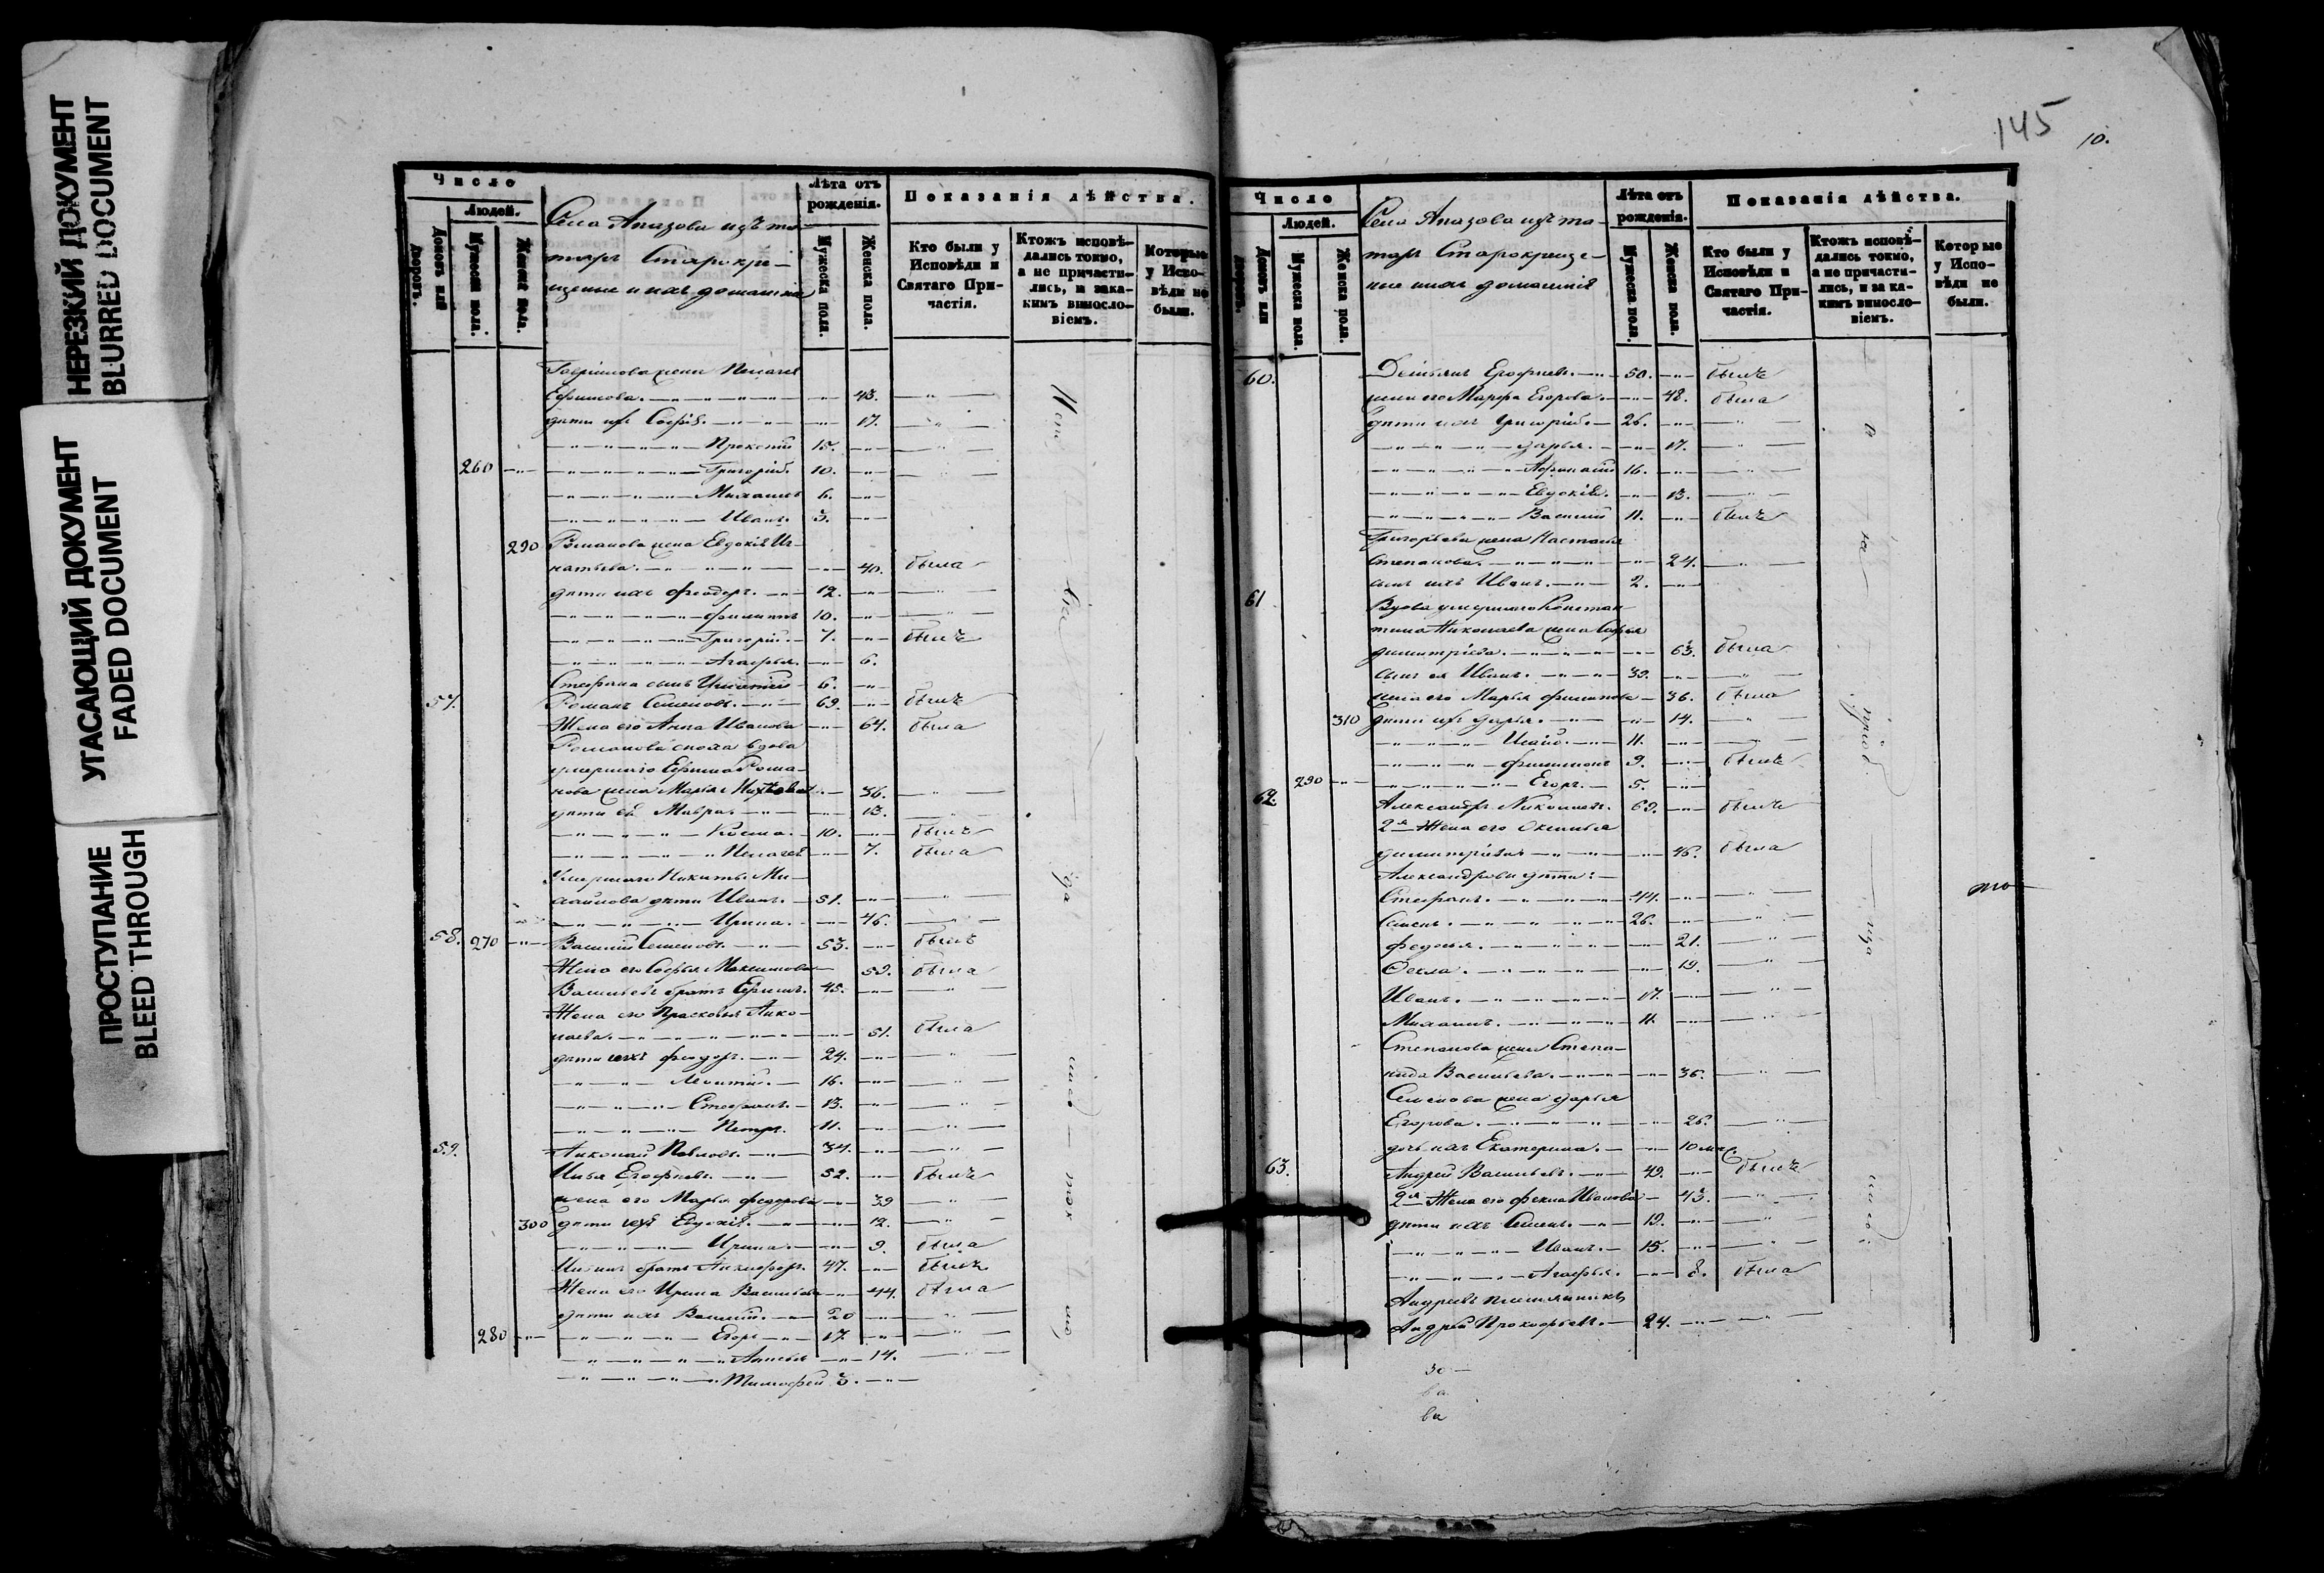 НЕРЕЗКИЙ ДОКУМЕНТ
BLURRED DOCUMENT
УГАСАЮЩИЙ ДОКУМЕНТ
FADED DOCUMENT
ПРОСТУПАНИЕ
BLEED THROUGH
Число
Людей.
Домовъ или дворовъ.
Мужеска пола.
Женска пола.
Села Апазова изъ та-
таръ Старокре-
щеные и ихъ домашніе
Лѣта отъ рожденія.
Мужеска пола.
Женска пола.
Показанія дѣйства.
Кто были у Исповѣди и Святаго При-частія.
Ктожъ исповѣ-дались токмо, а не причасти-лись, и зака-кимъ винословіемъ.
Которые у Испо-вѣди не были.
Гаврилова жена Пелагея
Ефимова. 43.
дѣти ихъ Софія. 17.
Прокопій 15.
260 Григорій. 10.
Михаилъ 6.
Иванъ. 3.
290 Романова жена Евдокія Иг-
натьева. 40. была
дѣти ихъ Феодоръ. 12.
Филиппъ 10.
Григорій. 7. былъ
Агафья. 6.
Стефана сынъ 6.
57. Романъ Семеновъ. 69. былъ
Жена его Анна Иванова 64. была
Романова сноха вдова
умершаго Ефима Рома-
нова жена Марья 36.
дѣти ея Мавра. 13.
Косма. 10. былъ
Пелагея 7. была
Умершаго Никиты Ми-
хайлова дѣти Иванъ. 51.
Ирина. 46.
58. 270 Василій Семеновъ. 53. былъ
Жена его Софья Максимова 59. была
Васильевъ братъ Ефимъ. 45.
Жена его Прасковья Нико-
лаева. 51. была
дѣти ихъ Феодоръ. 24.
Леонтій. 16.
Стефанъ. 13.
Петръ. 11.
59. Николай Павловъ. 34.
Илья Ерофеевъ. 52. былъ
жена его Марья Федорова 39
300 дѣти ихъ Евдокія. 12.
Ирина. 9. была
Ильинъ братъ Никифоръ. 47. былъ
Жена его Ирина Васильева 44. была
дѣти ихъ Василій. 20
280 Егоръ 17.
14.
Тимофей 3.
145
10.
Число
Людей.
Домовъ или дворовъ.
Мужеска пола.
Женска пола.
Села Апазова изъ та-
таръ Старокреще-
ные и ихъ домашніе
Лѣта отъ рожденія.
Мужеска пола.
Женска пола.
Показанія дѣйства.
Кто были у Исповѣди и Святаго При-частія.
Ктожъ исповѣ-дались токмо, а не причасти-лись, и за ка-кимъ винословіемъ.
Которые у Испо-вѣди не были.
60. Демьянъ Ерофеевъ. 50. былъ
жена его Марфа Егорова. 48. была
дѣти ихъ Григорій. 26.
Дарья. 17.
Афанасій 16.
Евдокія. 13.
Василій 11. былъ
Григорьева жена Настасья
Степанова. 24.
сынъ ихъ Иванъ. 2.
61 Вдова умершаго Констан-
тина Николаева жена Софья
Димитріева. 63. была
сынъ ея Иванъ. 39.
жена его Марья Филипова 36. была
310 дѣти ихъ Дарья. 14.
11.
Филимонъ 9. былъ
290 Егоръ. 5.
62. Александръ Николаевъ. 69. былъ
2я Жена его Оксинья
Димитріева 46. была
Александровы дѣти:
Стефанъ. 44.
Семенъ. 26.
Федосья. 21.
Фекла. 19.
Иванъ. 17.
Михаилъ. 11.
Степанова жена Степа-
нида Васильева. 36.
Семенова жена Дарья
Егорова. 26.
дочь ихъ Екатерина. 10 мѣс.
63. Андрей Васильевъ. 49. былъ
2я Жена его Фекла Иванова 43.
дѣти ихъ Семенъ. 19.
Иванъ. 15.
Агафья. 8. была
Андреевъ племянникъ
Андрей Прокофьевъ. 24.
ва